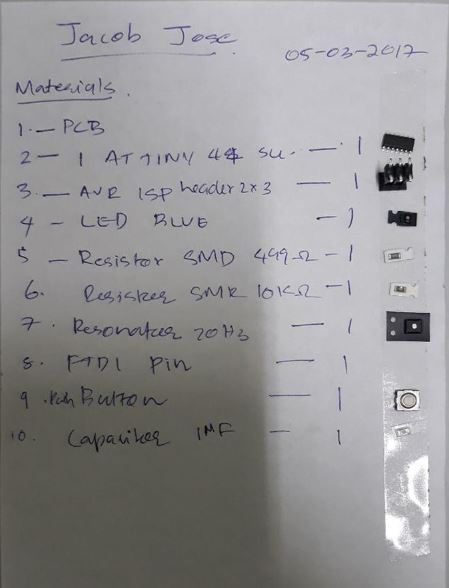 Jacob Jose
05-03-2017
Materials.
1. — PCB
2 — 1 ATTINY 44 SU. — 1
3. — AVR ISP header 2x3 — 1
4 - LED BLUE - 1
5 - Resistor SMD 499Ω - 1
6. Resister SMR 10KΩ - 1
7. Resonater 20Hz — 1
8. FTDI Pin — 1
9. Button — 1
10. Capaciter 1MF — 1